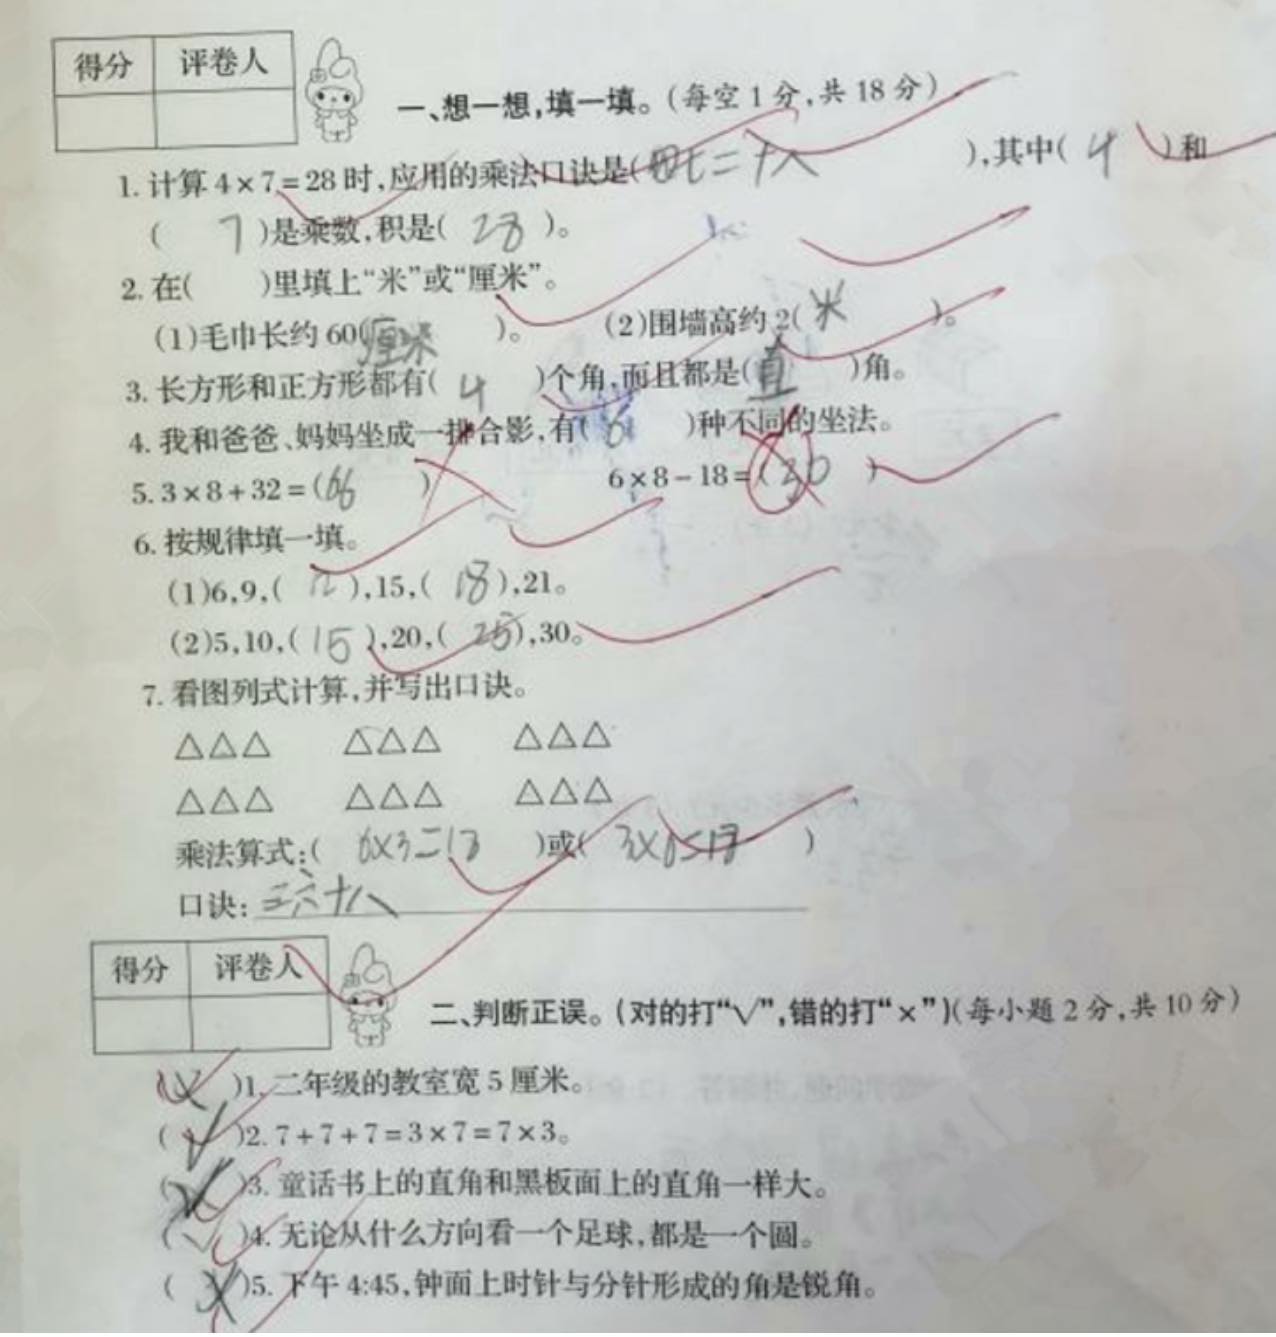 得分 评卷人
一、想一想,填一填。(每空1分,共18分)
1. 计算4×7=28时,应用的乘法口诀是(四七二十八),其中( 4 )和
( 7 )是乘数,积是( 28 )。
2. 在( )里填上“米”或“厘米”。
(1)毛巾长约60(厘米)。 (2)围墙高约2(米)。
3. 长方形和正方形都有( 4 )个角,而且都是( 直 )角。
4. 我和爸爸、妈妈坐成一排合影,有( 6 )种不同的坐法。
5. 3×8+32=(66) 6×8-18=(30)
6. 按规律填一填。
(1)6,9,( 12 ),15,( 18 ),21。
(2)5,10,( 15 ),20,( 25 ),30。
7. 看图列式计算,并写出口诀。
乘法算式:( 6×3=18 )或( 3×6=18 )
口诀:三六十八
得分 评卷人
二、判断正误。(对的打“√”,错的打“×”)(每小题2分,共10分)
(×)1. 二年级的教室宽5厘米。
(√)2. 7+7+7=3×7=7×3。
( )3. 童话书上的直角和黑板面上的直角一样大。
(√)4. 无论从什么方向看一个足球,都是一个圆。
(×)5. 下午4:45,钟面上时针与分针形成的角是锐角。